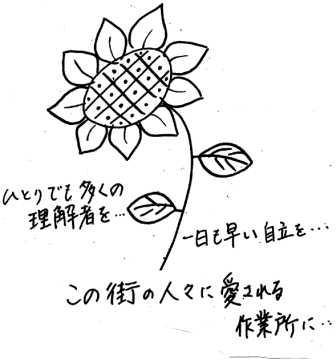 ひとりでも多くの
理解者を…
一日も早い自立を…
この街の人々に愛される
作業所に…